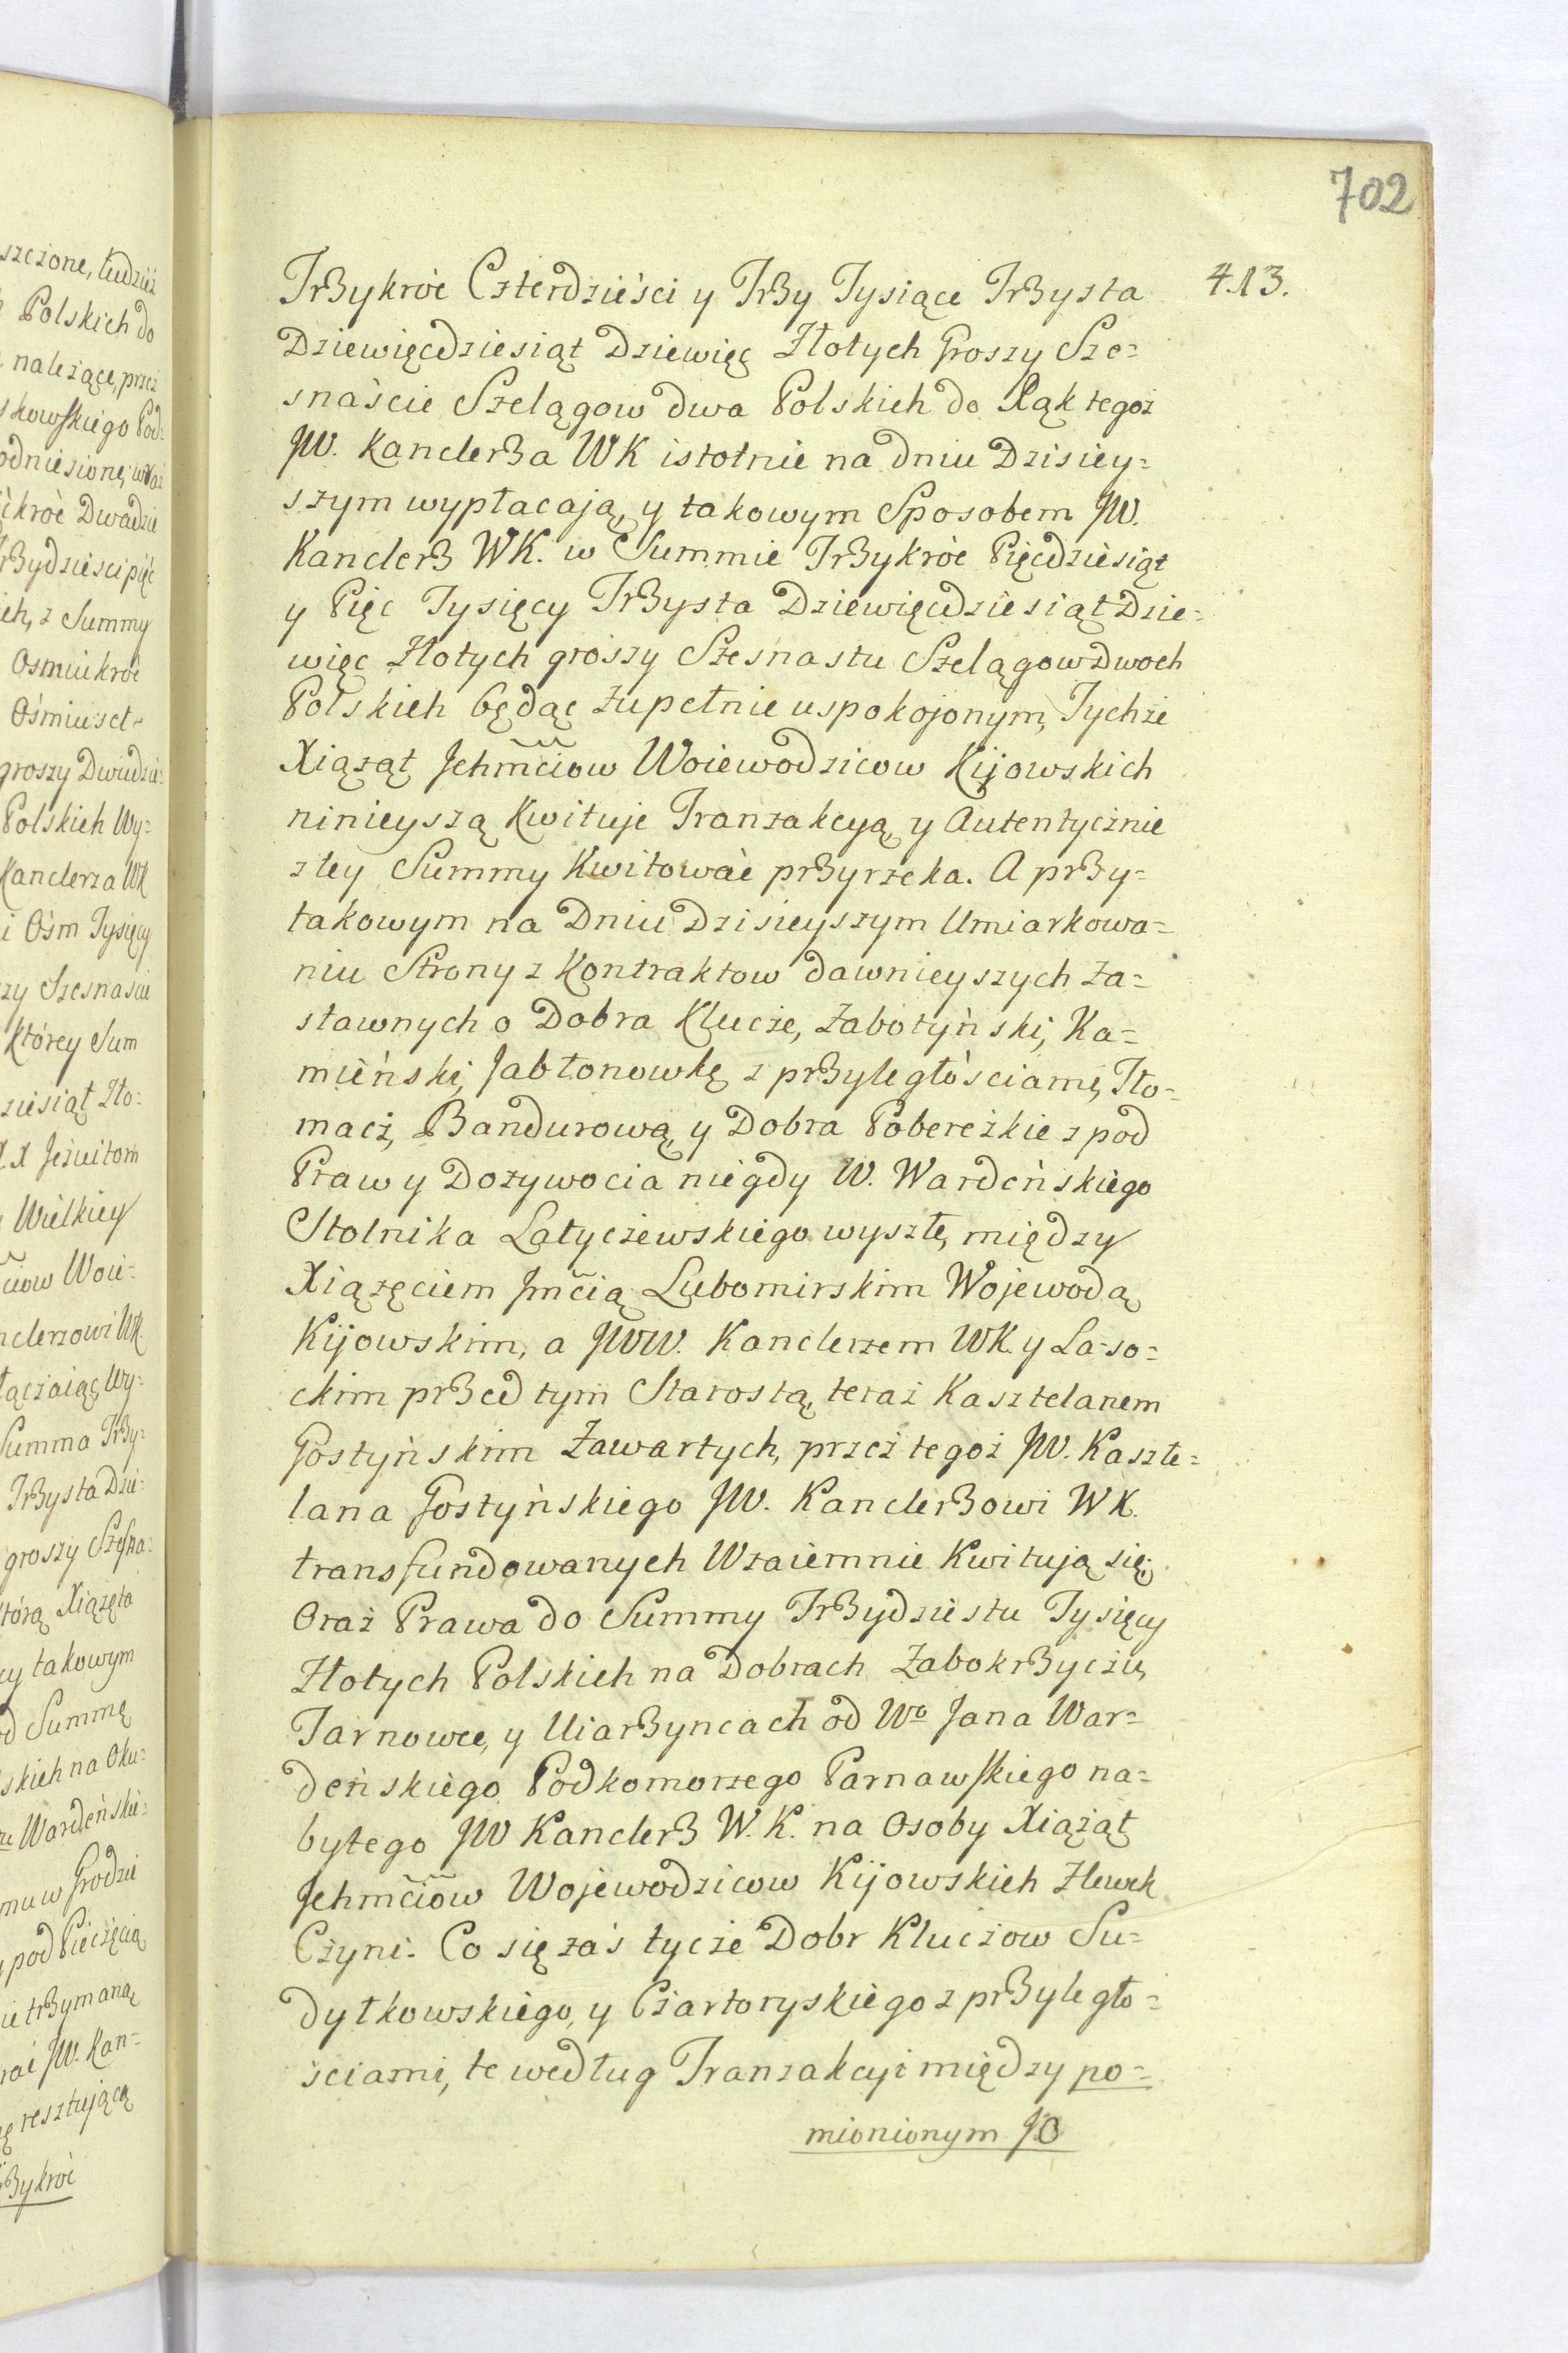 702
413.
Trzykróc Czterdzieści y Trzy Tysiące Trzysta
Dziewięcdziesiąt Dziewięc Złotych Groszy Sze=
snaście Szelągow dwa Polskich do Rąk tegoż
JW. Kanclerza WK istotnie na dniu Dzisiey=
szym wypłacają, y takowym Sposobem JW.
Kanclerz WK. w Summie Trzykróc Pięcdziesiąt
y Pięc Tysięcy Trzysta Dziewięcdziesiąt Dzie=
więc Złotych groszy Szesnastu Szelągow Dwoch
Polskich będąc zupełnie uspokojonym, Tychże
Xiążąt Jchmciow Woiewodzicow Kijowskich
ninieyszą Kwituje Tranzakcyą, y Autentycznie
z tey Summy Kwitowac przyrzeka. A przy=
takowym na Dniu Dzisieyszym Umiarkowa=
niu Strony z Kontraktow dawnieyszych Za=
stawnych o Dobra Klucze, Żabotyński, Ka=
mieński, Jabłonowkę z przyległościami, Tło=
macz, Bandurową, y Dobra Pobereżkie z pod
Praw y Dożywocia niegdy W. Wardeńskiego
Stolnika Latyczewskiego wyszłe, między
Xiążęciem Jmcią Lubomirskim Wojewodą
Kijowskim, a JWW. Kanclerzem WK. y La-so=
ckim przed tym Starostą, teraz Kasztelanem
Gostyńskim Zawartych, przez tegoż JW. Kaszte=
lana Gostyńskiego JW. Kanclerzowi WK.
transfundowanych Wzaiemnie Kwitują się;
Oraz Prawa do Summy Trzydziestu Tysięcy
Złotych Polskich na Dobrach Zabokrzyczu,
Tarnowce, y Uiarzyncach od Wo Jana War=
deńskiego Podkomorzego Parnawskiego na=
bytego JW Kanclerz W.K. na Osoby Xiążąt
Jchmciow Wojewodzicow Kijowskich Zlewek
Czyni. Co się zaś tycze Dobr Kluczow Su=
dyłkowskiego, y Czartoryskiego z przyległo=
ściami, te według Tranzakcyi między po=
mionionym JO